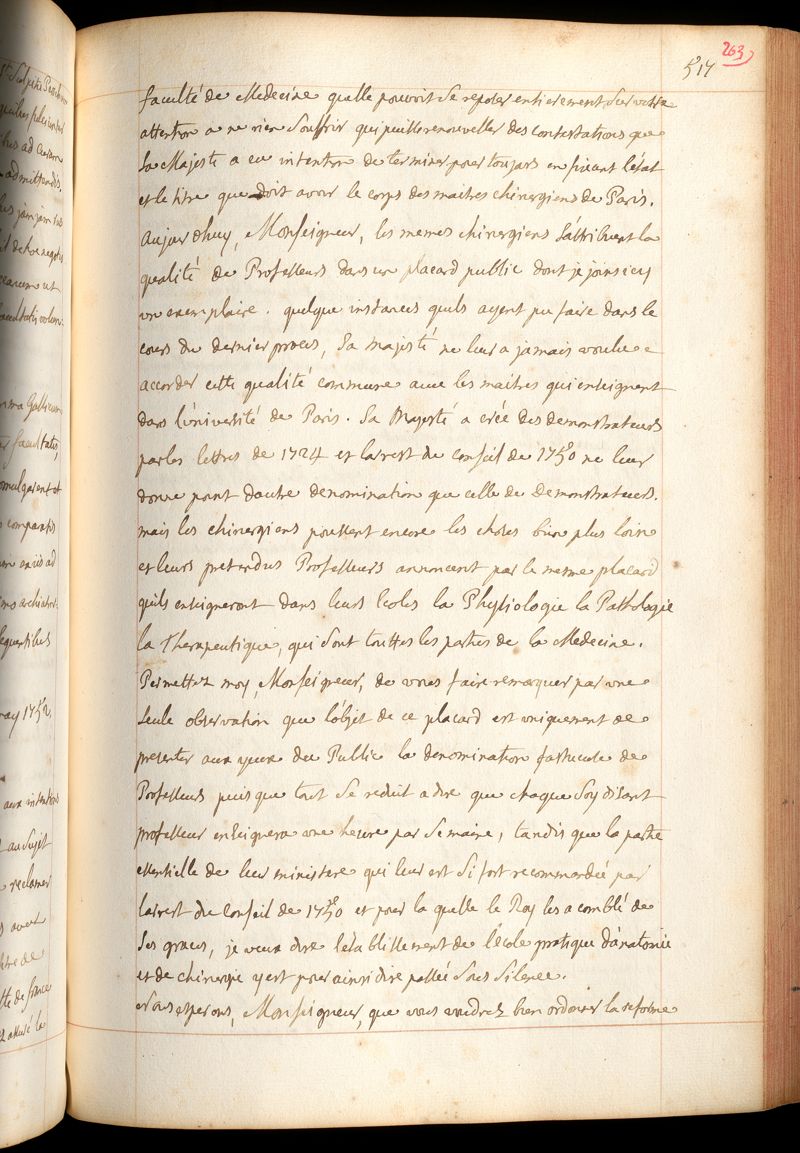 263
517
faculté de Medecine quelle pouvoit Se reposer entierement Sur votre
attention a ne rien Souffrir qui puisse renouveller des contestations que
Sa Majesté a eu intention de terminer pour toujars en fixant l'état
et le titre que doit avoir le corps des maitres chirurgiens de Paris.
Aujard'huy, Monseigneur, les memes chirurgiens S'attribuent la
qualité de Professeurs dans un placard public dont je joins icy
un exemplaire. quelque instances quils ayent pu faire dans le
cours du dernier procès, Sa majesté ne leur a jamais voulue
accorder cette qualité commune avec les maitres qui enseignent
dans l'université de Paris. Sa Majesté a créé des demonstrateurs
par les lettres de 1724 et larrest du conseil de 1750 ne leur
donne point dautre denomination que celle de Demonstrateurs.
mais les chirurgiens poussent encore les choses bien plus loin
et leurs pretendus Professeurs annoncent par le mesme placard
quils enseigneront dans leurs Ecoles la Physiologie la Pathologie
la Therapeutique, qui Sont touttes les parties de la Medecine.
Permettez moy, Monseigneur, de vous faire remarquer par une
Seule observation que l'objet de ce placard est uniquement de
presenter aux yeux du Public la denomination fastueuse de
Professeurs puisque tout Se reduit a dire que chaque Soy disant
professeur enseignera une heure par Semaine, tandis que la partie
essentielle de leur ministere qui leur est Si fort recommandée par
larrest du Conseil de 1750 et pour la quelle le Roy les a comblé de
Ses graces, je veux dire l'établissement de l'école pratique d'anatomie
et de chirurgie y est pour ainsi dire passée Sous Silence.
Nous esperons, Monseigneur, que vous voudrez bien ordonner la reforme